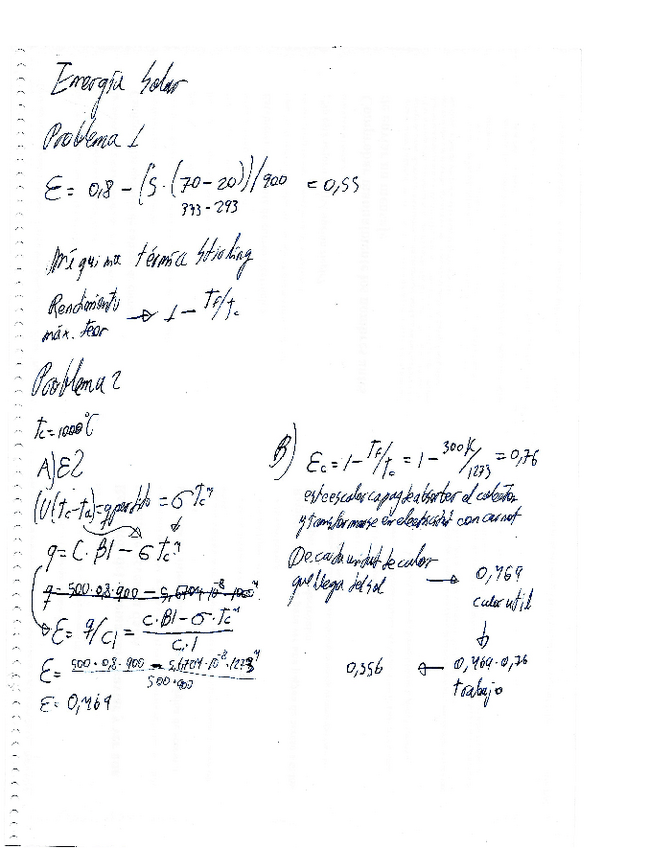 Energía Solar
Problema 1
ε = 0,8 - (5 · (70-20))/900 = 0,55
373-293
Máquina térmica Stirling
Rendimiento máx. teor → 1 - Tf/Tc
Problema 2
Tc=1000°C
A) ε?
(U(Tc-Ta)=q perdido = σ Tc⁴
q = C · βI - σ Tc⁴
q = 500 · 0,8 · 900 - 5,6704·10⁻⁸ · 1000⁴
ε = q/CI = (C · βI - σ · Tc⁴)/(C · I)
ε = (500 · 0,8 · 900 - 5,6704 · 10⁻⁸ · 1273⁴)/(500 · 900)
ε = 0,469
B) εc = 1 - Tf/Tc = 1 - 300K/1273 = 0,76
este calor capaz de absorber el colector
y transformarse en electricidad con carnot
De cada unidad de calor
que llega del sol → 0,469
calor util
↓
0,356 ← 0,469 · 0,76
trabajo